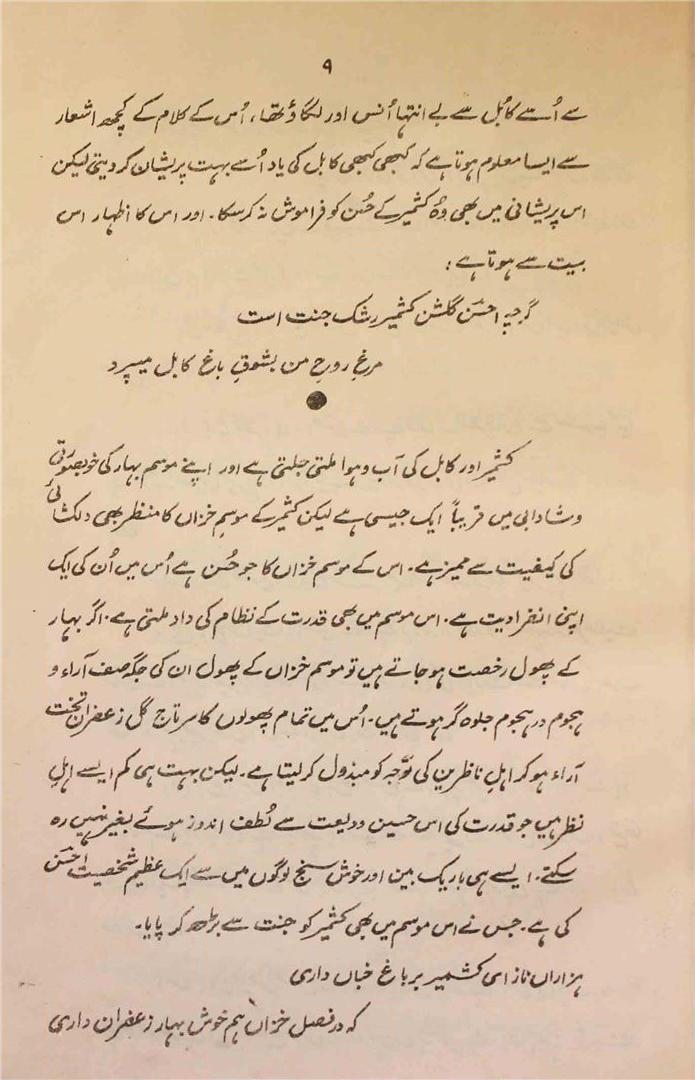 ۹
سے اُسے کابُل سے بے انتہا اُنس اور لگاؤ تھا، اُس کے کلام کے کچھ اشعار
سے ایسا معلوم ہوتا ہے کہ کبھی کبھی کابل کی یاد اُسے بہت پریشان کر دیتی لیکن
اس پریشانی میں بھی وُہ کشمیر کے حُسن کو فراموش نہ کر سکا۔ اور اس کا اظہار اس
بیت سے ہوتا ہے:
گرچہ احسن گلشن کشمیر رشک جنت است
مرغِ روحِ من بشوقِ باغ کابل میپرد
کشمیر اور کابل کی آب و ہوا ملتی جلتی ہے اور اپنے موسم بہار کی خوبصورتی
و شادابی میں قریباً ایک جیسی ہے لیکن کشمیر کے موسمِ خزاں کا منظر بھی دلکشائی
کی کیفیت سے ممیز ہے۔ اس کے موسم خزاں کا جو حُسن ہے اُس میں اُن کی ایک
اپنی انفرادیت ہے۔ اس موسم میں بھی قدرت کے نظام کی داد ملتی ہے۔ اگر بہار
کے پھول رخصت ہو جاتے ہیں تو موسم خزاں کے پھول ان کی جگہ صف آراء و
ہجوم در ہجوم جلوہ گر ہوتے ہیں۔ اُس میں تمام پھولوں کا سرتاج گل زعفران تخت
آراء ہو کر اہلِ ناظرین کی توجّہ کو مبذول کر لیتا ہے۔ لیکن بہت ہی کم ایسے اہلِ
نظر ہیں جو قدرت کی اس حسین ودیعت سے لُطف اندوز ہوئے بغیر نہیں رہ
سکتے۔ ایسے ہی باریک بین اور خوش سنج لوگوں میں سے ایک عظیم شخصیت احسن
کی ہے۔ جس نے اس موسم میں بھی کشمیر کو جنت سے بڑھ کر پایا۔
ہزاراں ناز ای کشمیر بر باغ خباں داری
کہ در فصل خزاں ہم خوش بہار زعفران داری